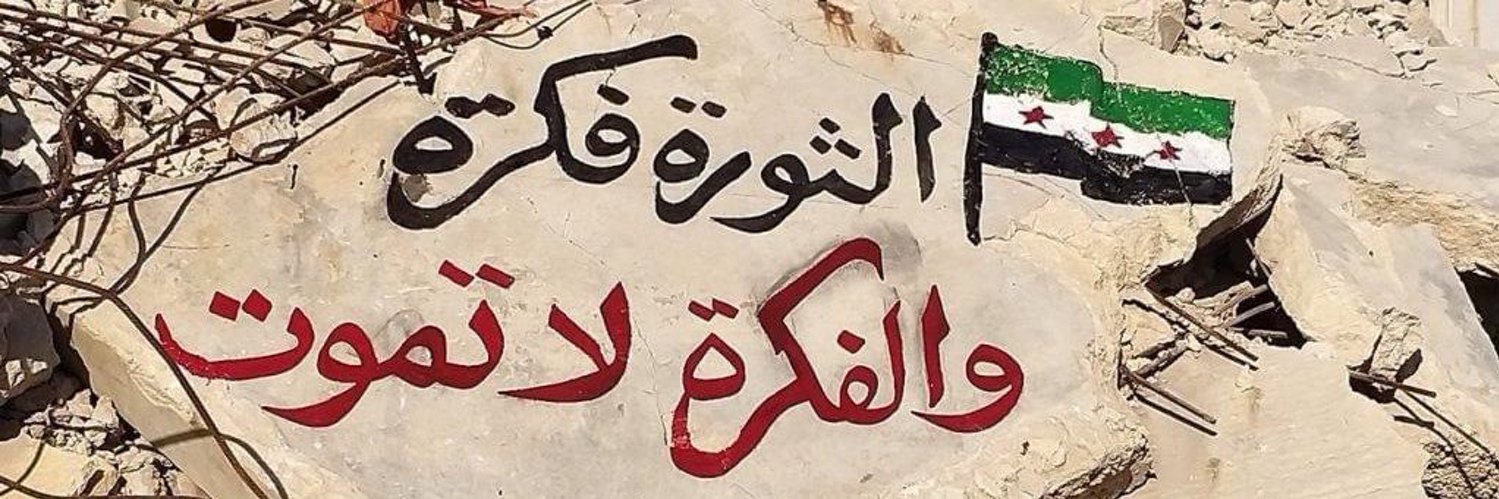 الثورة فكرة
والفكرة لا تموت